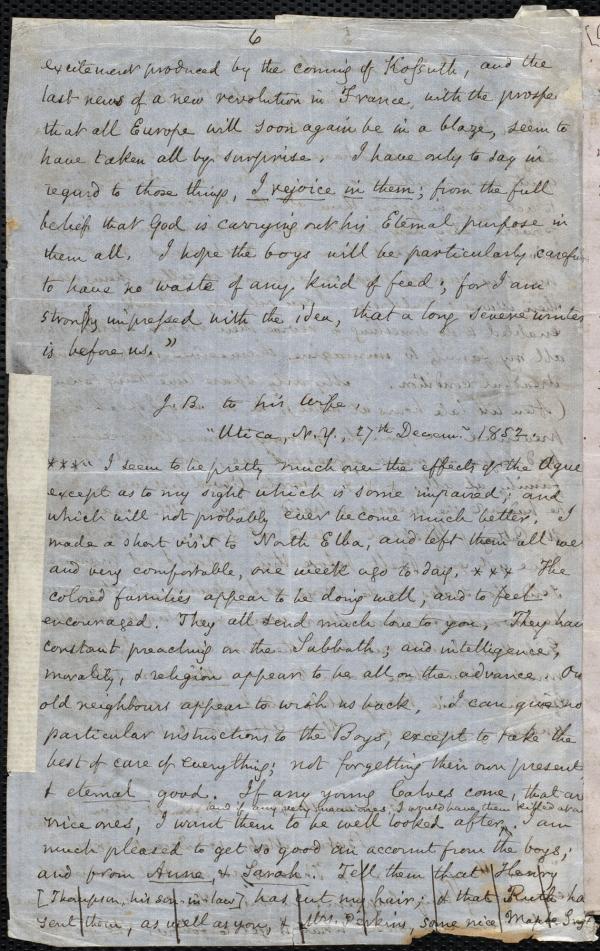 6
excitement produced by the coming of Kossuth, and the
last news of a new revolution in France, with the prospe
that all Europe will soon again be in a blaze, seem to
have taken all by surprise. I have only to say in
regard to those things, I rejoice in them; from the full
belief that God is carrying out his Eternal purpose in
them all. I hope the boys will be particularly careful
to have no waste of any kind of feed; for I am
strongly impressed with the idea, that a long severe winter
is before us."
J.B. to his wife.
"Utica, N.Y., 27th Decem. 1852.
***" I seem to be pretty much over the effects of the Ague
except as to my sight which is some impaired; and
which will not probably ever become much better. I
made a short visit to North Elba, and left them all we
and very comfortable, one week ago to day. *** The
colored families appear to be doing well, and to feel
encouraged. They all send much love to you. They have
constant preaching on the Sabbath; and intelligence,
morality, & religion appear to be all on the advance. Ou
old neighbours appear to wish us back. I can give no
particular instructions to the Boys, except to take the
best of care of everything; not forgetting their own present,
& eternal good. If any young Calves come, that are
and if any nice ones, I would have them
nice ones, I want them to be well looked after. I am
much pleased to get so good an account from the boys;
and from Anne, & Sarah. Tell them that Henry
[Thompson, his son-in-law] has cut my hair; & that Ruth ha
sent them, as well as you, & Mrs. Perkins, some nice Maple Sug